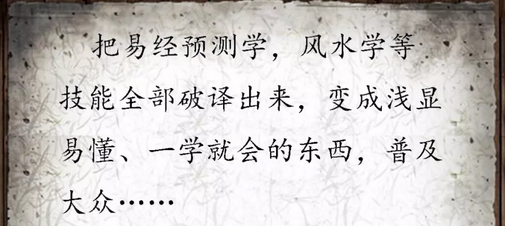 把易经预测学，风水学等
技能全部破译出来，变成浅显
易懂、一学就会的东西，普及
大众……